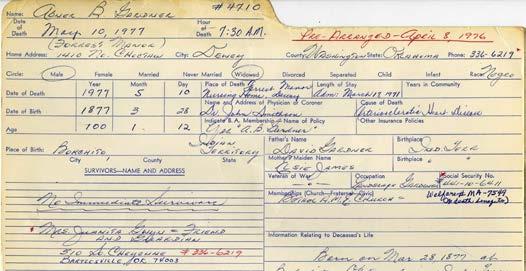 Name: Abner B Gardner #4710
Date of Death May 10, 1977 Hour of Death 7:30 A.M. Pre-Arranged - April 8, 1976
(Forrest Manor)
Home Address: 1410 No. Choctaw City Dewey County Washington State Oklahoma Phone: 336-6219
Circle: Male Female Married Never Married Widowed Divorced Separated Child Infant Race Negro
Year Month Day Place of Death Forrest Manor Length of Stay Years in Community
Date of Death 1977 5 10 Nursing Home, Dewey Adm: March 19, 1971
Name and Address of Physician or Coroner Cause of Death
Date of Birth 1877 3 28 Dr. John Smithson Arteriosclerotic Heart Disease
Indicate B.A. Membership—Name of Policy Other Insurance Policies
Age 100 1 12 Yes A.B. Gardner
Place of Birth: Bokchito Indian Territory
City County State
Father's Name Birthplace
David Gardner Ind. Terr
Mother's Maiden Name Birthplace
Elsie James
SURVIVORS—NAME AND ADDRESS
Veteran of War Occupation Social Security No.
Gardener 441-10-6411
Membership (Church—Fraternal—Civic) Welfare # MA-7549
Bethel A.M.E. Church (No death benefits)
No Immediate Survivors
Information Relating to Deceased's Life:
Mrs Juanita = Friend
and Guardian
Born on Mar 28, 1877 at
310 So. Cheyenne #336-6219
Bartlesville, OK 74003